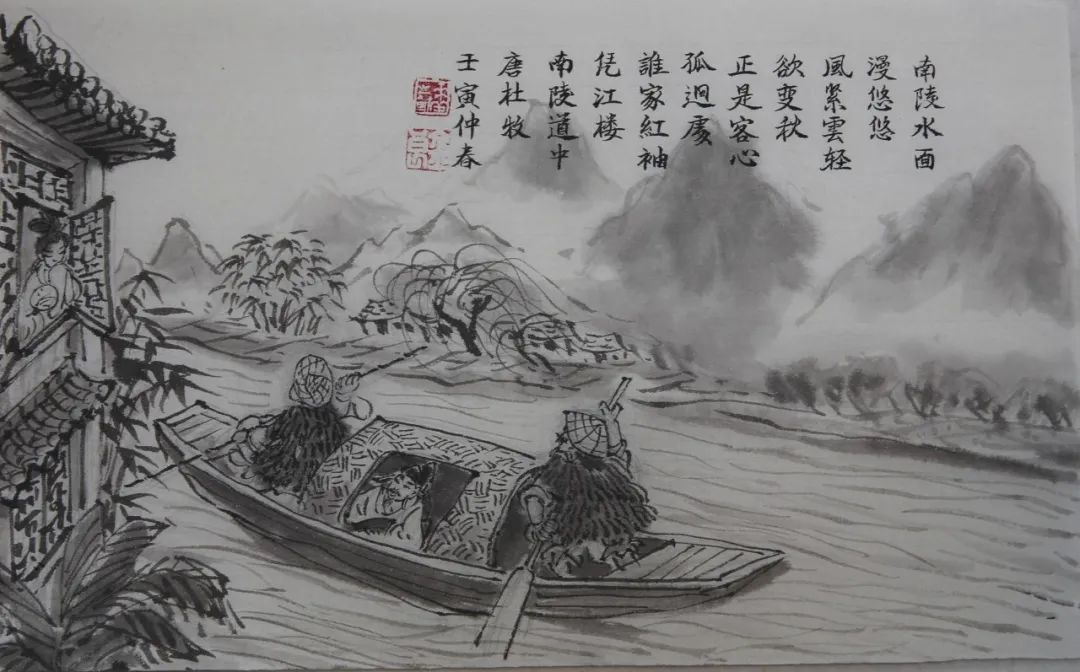 南陵水面
漫悠悠
風緊雲轻
欲变秋
正是客心
孤迥處
誰家紅袖
凭江楼
南陵道中
唐杜牧
壬寅仲春